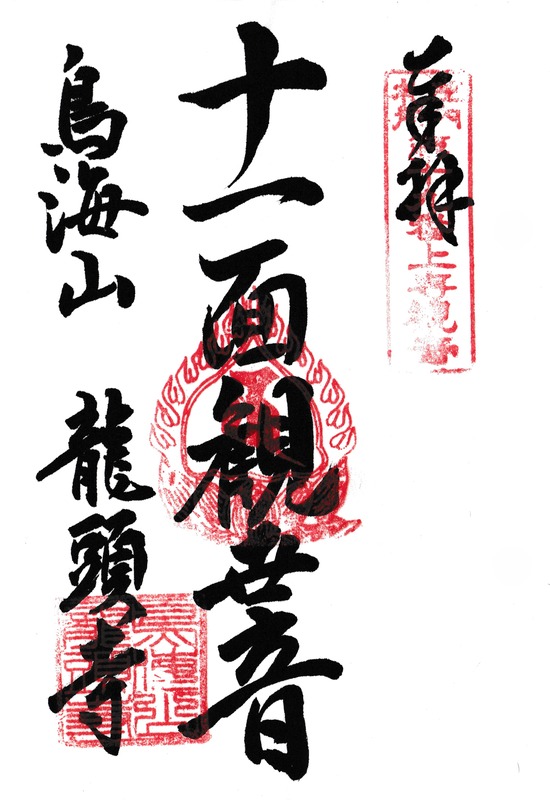 奉拝
十一面観世音
鳥海山 龍頭寺